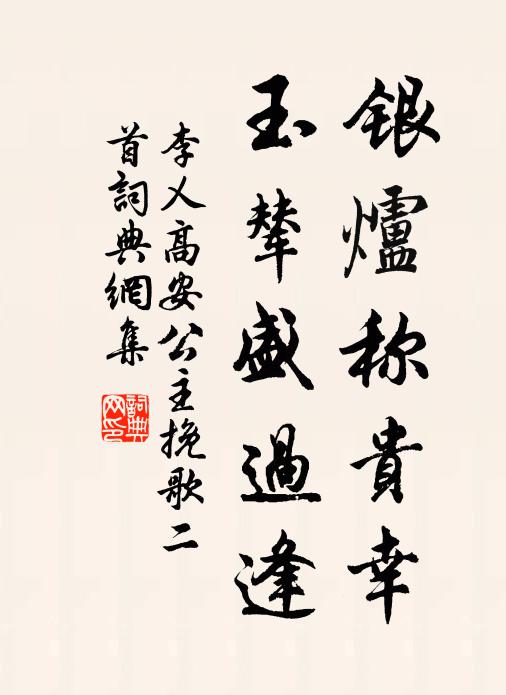 银爐称貴幸
玉輦盛過逢
李乂高安公主挽歌二
首詞典網集
詞典
网印